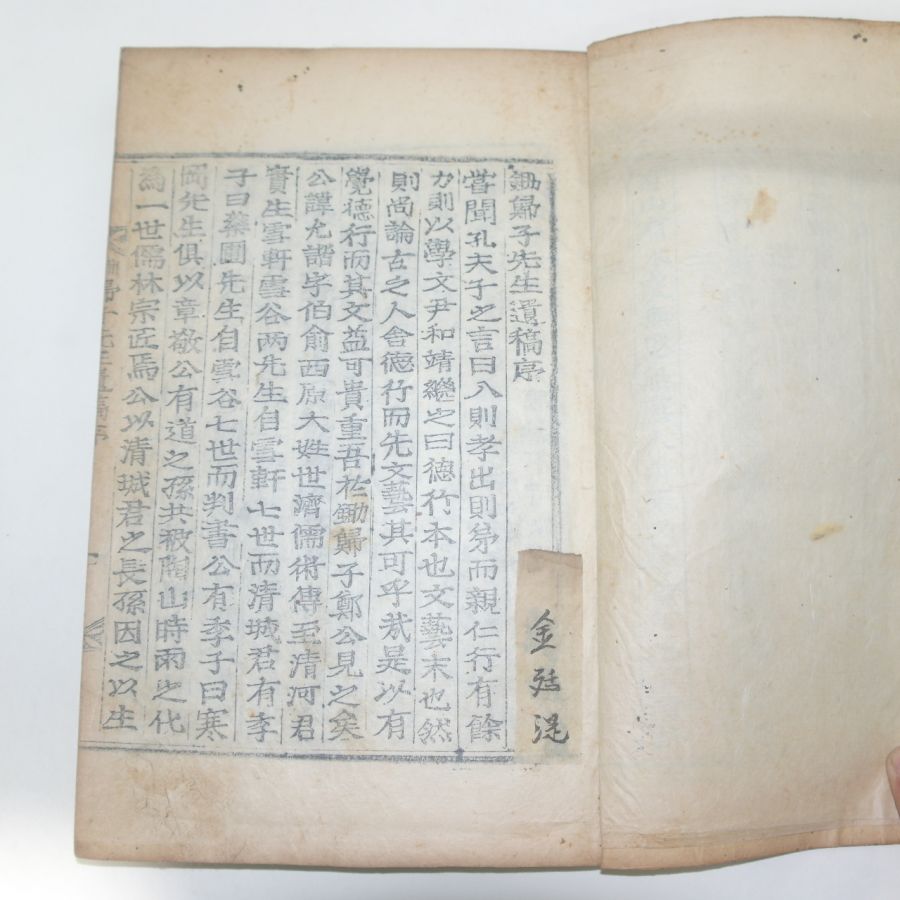 鋤歸子先生遺稿序
嘗聞孔夫子之言曰入則孝出則弟而親仁行有餘
力則以學文尹和靖繼之曰德行本也文藝末也然
則尚論古之人舍德行而先文藝其可乎哉是以有
覺德行而其文益可貴重吾於鋤歸子鄭公見之矣
公諱允諧字伯兪西原大姓世濟儒術傳至淸河君
實生雪軒雪谷两先生自雪軒七世而淸城君有季
子曰藥圃先生自雪谷七世而判書公有季子曰寒
岡先生俱以章敬公有道之孫共被陶山時雨之化
爲一世儒林宗匠焉公以淸城君之長孫因之以生
金
浞